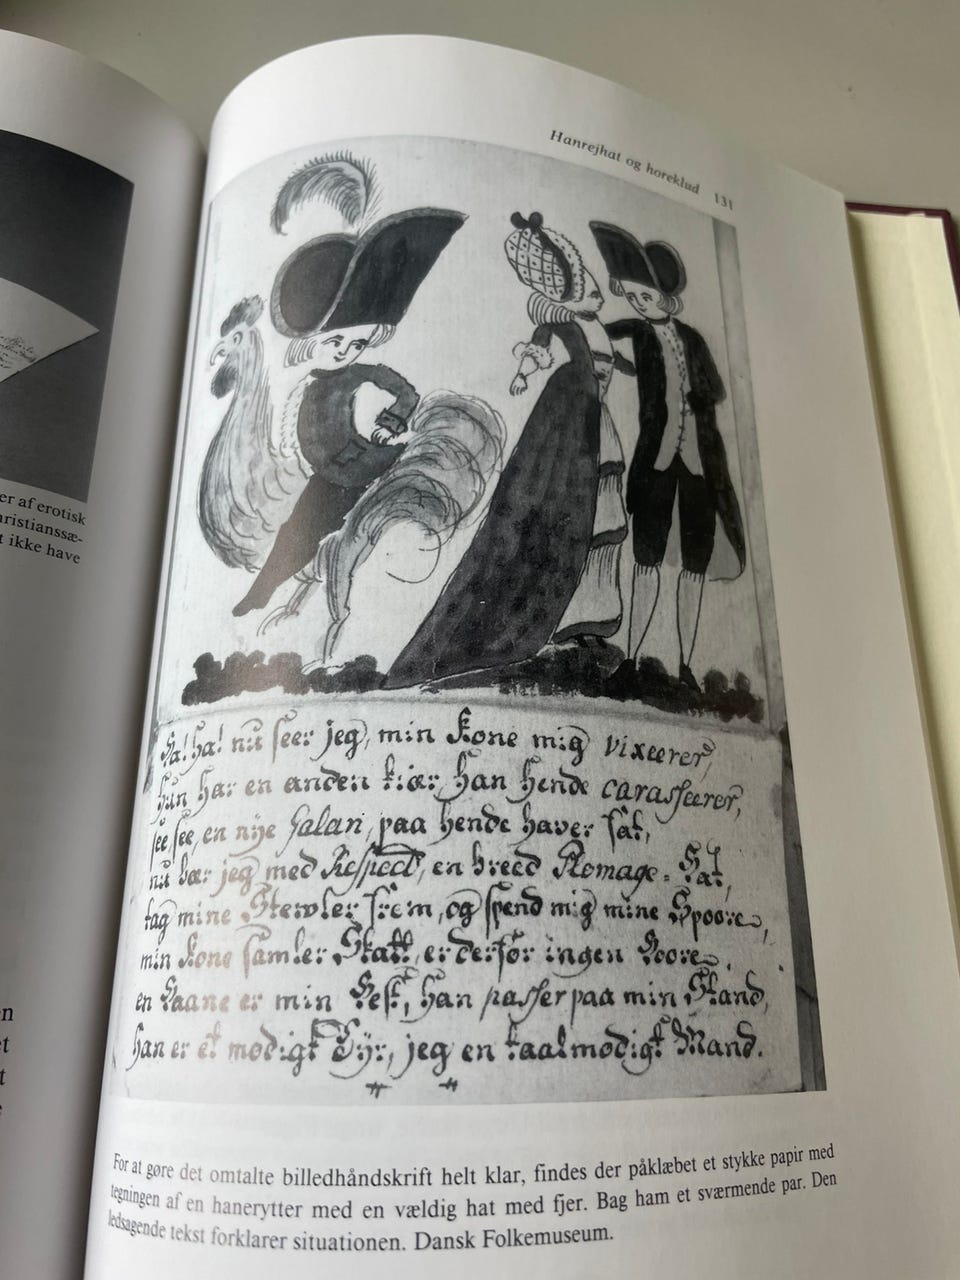 Hanrejhat og horeklud 131
er af erotisk
hristianssæ-
t ikke have
Ha! ha! nu seer jeg, min Kone mig vixeerer,
hun har en anden kiær, han hende carasseerer,
see, see, en nye Galan, paa hende haver fat,
nu bær jeg med Respect, en breed Plomage-Hat,
tag mine Stevler frem, og spend mig mine Spoore,
min Kone samler Skatt, er derfor ingen Hoore.
en Haane er min Hest, han passer paa min Stand,
han er et modigt Dyr, jeg en taalmodigt Mand.
en
et
t
For at gøre det omtalte billedhåndskrift helt klar, findes der påklæbet et stykke papir med
tegningen af en hanerytter med en vældig hat med fjer. Bag ham et sværmende par. Den
ledsagende tekst forklarer situationen. Dansk Folkemuseum.